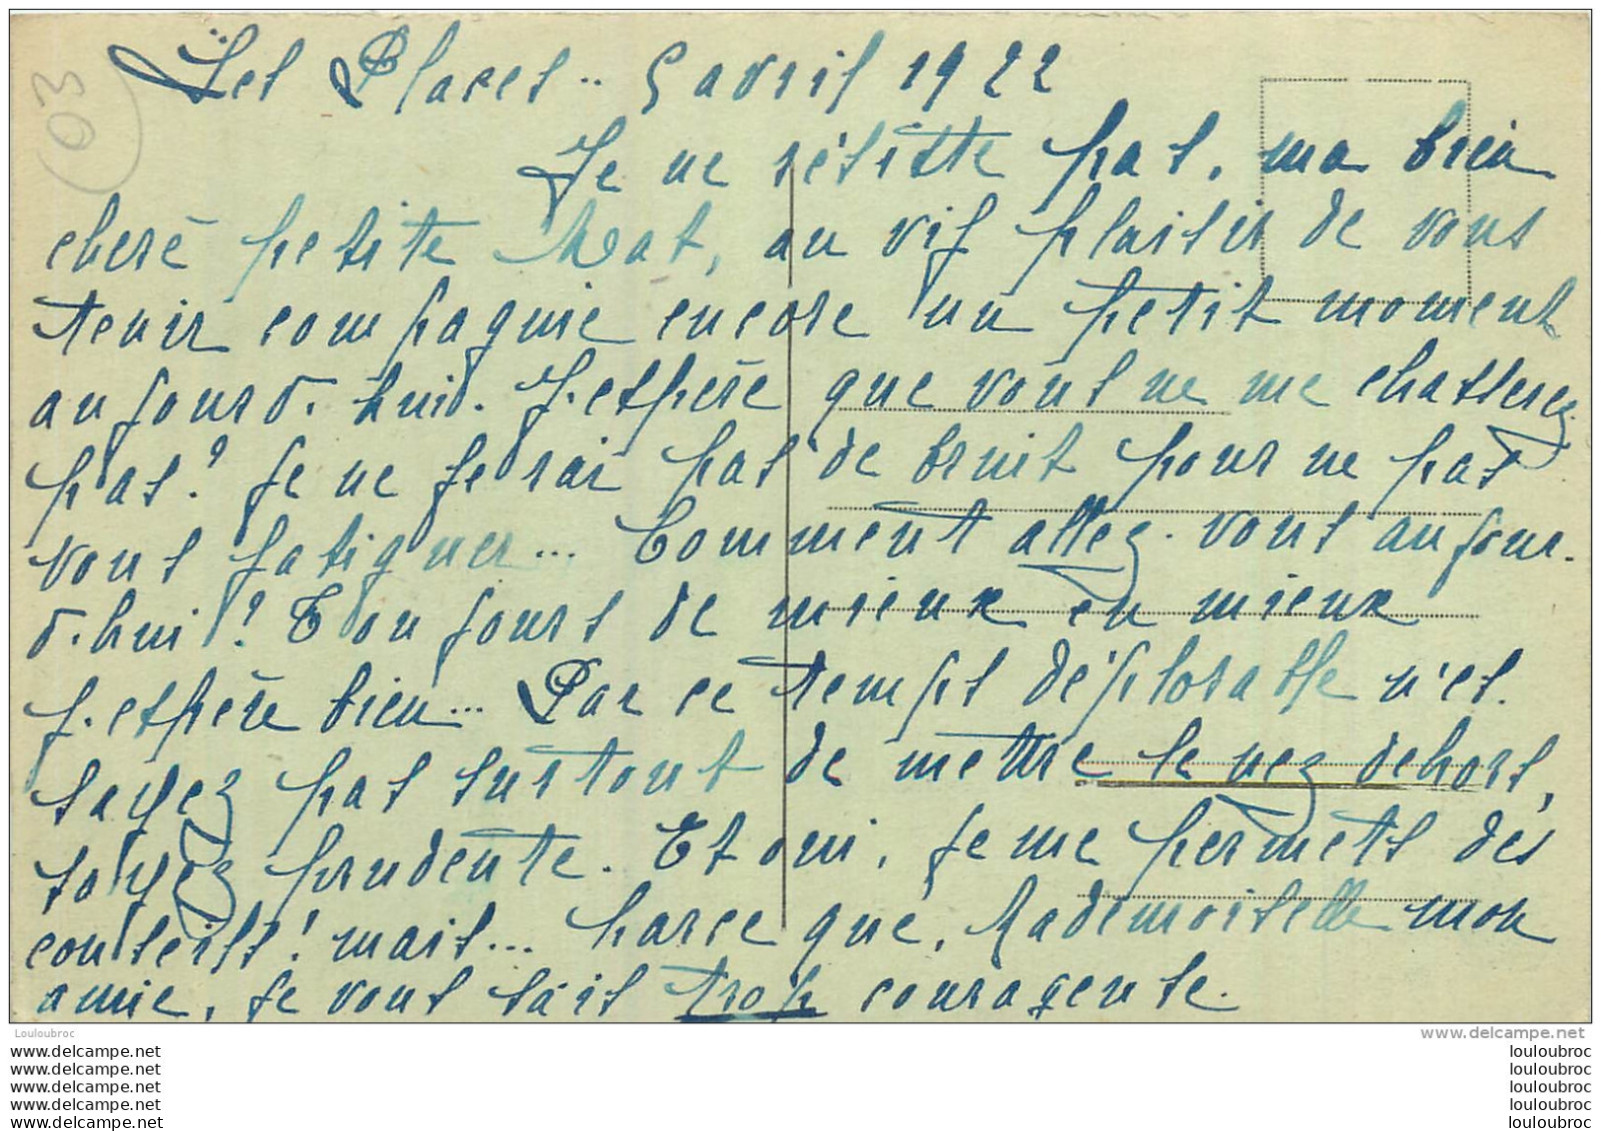 Les Places.. 5 avril 1922
Je ne résiste pas, ma bien
chère petite Mat, au vif plaisir de vous
tenir compagnie encore un petit moment
aujourd'hui. J'espère que vous ne me chasserez
pas? Je ne ferai pas de bruit pour ne pas
vous fatiguer... Comment allez-vous aujour-
d'hui? Toujours de mieux en mieux
j'espère bien... Par ce temps déplorable n'es-
sayez pas surtout de mettre le nez dehors,
soyez prudente. Et oui, je me permets des
conseils! mais... parce que, Mademoiselle mon
amie, je vous sais trop courageuse.
03
Louloubroc
www.delcampe.net
www.delcampe.net
www.delcampe.net
www.delcampe.net
www.delcampe.net
www.delcampe.net
louloubroc
louloubroc
louloubroc
louloubroc
louloubroc